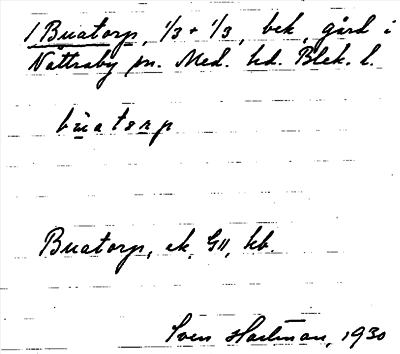 1 Buatorp, 1/3 + 1/3, bek, gård i
Nättraby sn. Med. hd. Blek. l.
bu̳atorp
Buatorp, ek, GII, hb.
Sven Hartman, 1930